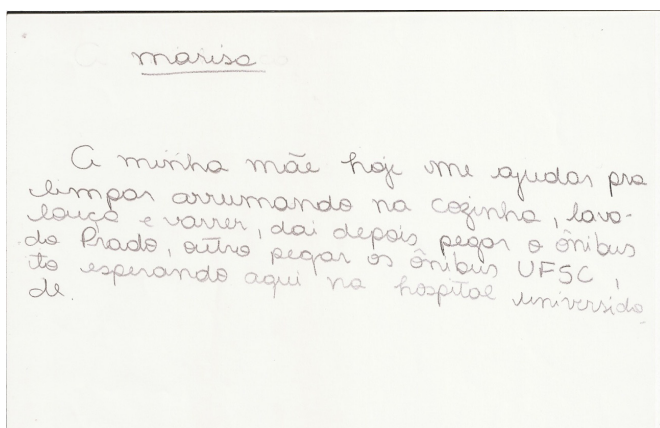 marisa
A minha mãe hoje me ajudar pra
limpar arrumando na cozinha, lava
louça e varrer, dai depois pegar o ônibus
do Prado, outro pegar os ônibus UFSC,
to esperando aqui na hospital universida-
de.